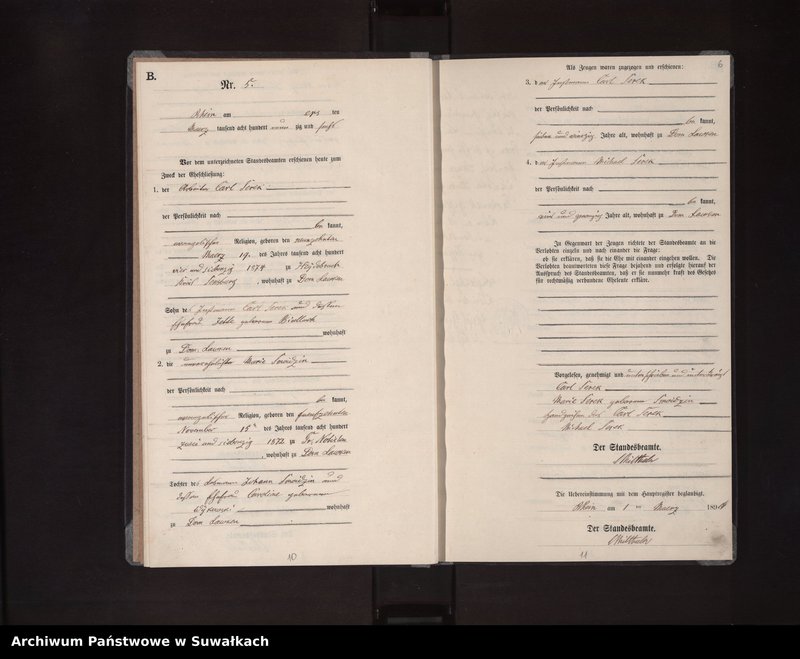 B.
Nr. 5.
Rhein am ers ten
Maerz tausend acht hundert neun zig und sechs
Vor dem unterzeichneten Standesbeamten erschienen heute zum
Zweck der Eheschließung:
1. der Arbeiter Carl Serek
der Persönlichkeit nach
be kannt,
evangelischer Religion, geboren den neunzehnten
Maerz 19. des Jahres tausend acht hundert
vier und siebenzig 1874 zu Heydebruch
Kreis Sensburg, wohnhaft zu Dom Lawken
Sohn des Instmann Carl Serek und dessen
Ehefrau geborenen
wohnhaft
zu Dom. Lawken
2. die unverehelichte Marie Sowidzin
der Persönlichkeit nach
be kannt,
evangelischer Religion, geboren den fuenfzehnten
November 15 des Jahres tausend acht hundert
zwei und siebenzig 1872 zu Gr. Notisten
, wohnhaft zu Dom Lawken
Tochter des Losmann Johann Sowidzin und
dessen Ehefrau Caroline geborenen
wohnhaft
zu Dom Lawken
10
6
Als Zeugen waren zugezogen und erschienen:
3. der Instmann Carl Serek
der Persönlichkeit nach
be kannt,
sieben und vierzig Jahre alt, wohnhaft zu Dom Lawken
4. der Instmann Michael Serek
der Persönlichkeit nach
be kannt,
ein und zwanzig Jahre alt, wohnhaft zu Dom Lawken
In Gegenwart der Zeugen richtete der Standesbeamte an die
Verlobten einzeln und nach einander die Frage:
ob sie erklären, daß sie die Ehe mit einander eingehen wollen. Die
Verlobten beantworteten diese Frage bejahend und erfolgte hierauf der
Ausspruch des Standesbeamten, daß er sie nunmehr kraft des Gesetzes
für rechtmäßig verbundene Eheleute erkläre.
Vorgelesen, genehmigt und unterschrieben und unterkreuzt
Carl Serek
Marie Serek geborene Sowidzin
Handzeichen des Carl Serek
Michael Serek
Der Standesbeamte.
Die Uebereinstimmung mit dem Hauptregister beglaubigt.
Rhein am 1 ten Maerz 189
Der Standesbeamte.
11
Archiwum Państwowe w Suwałkach